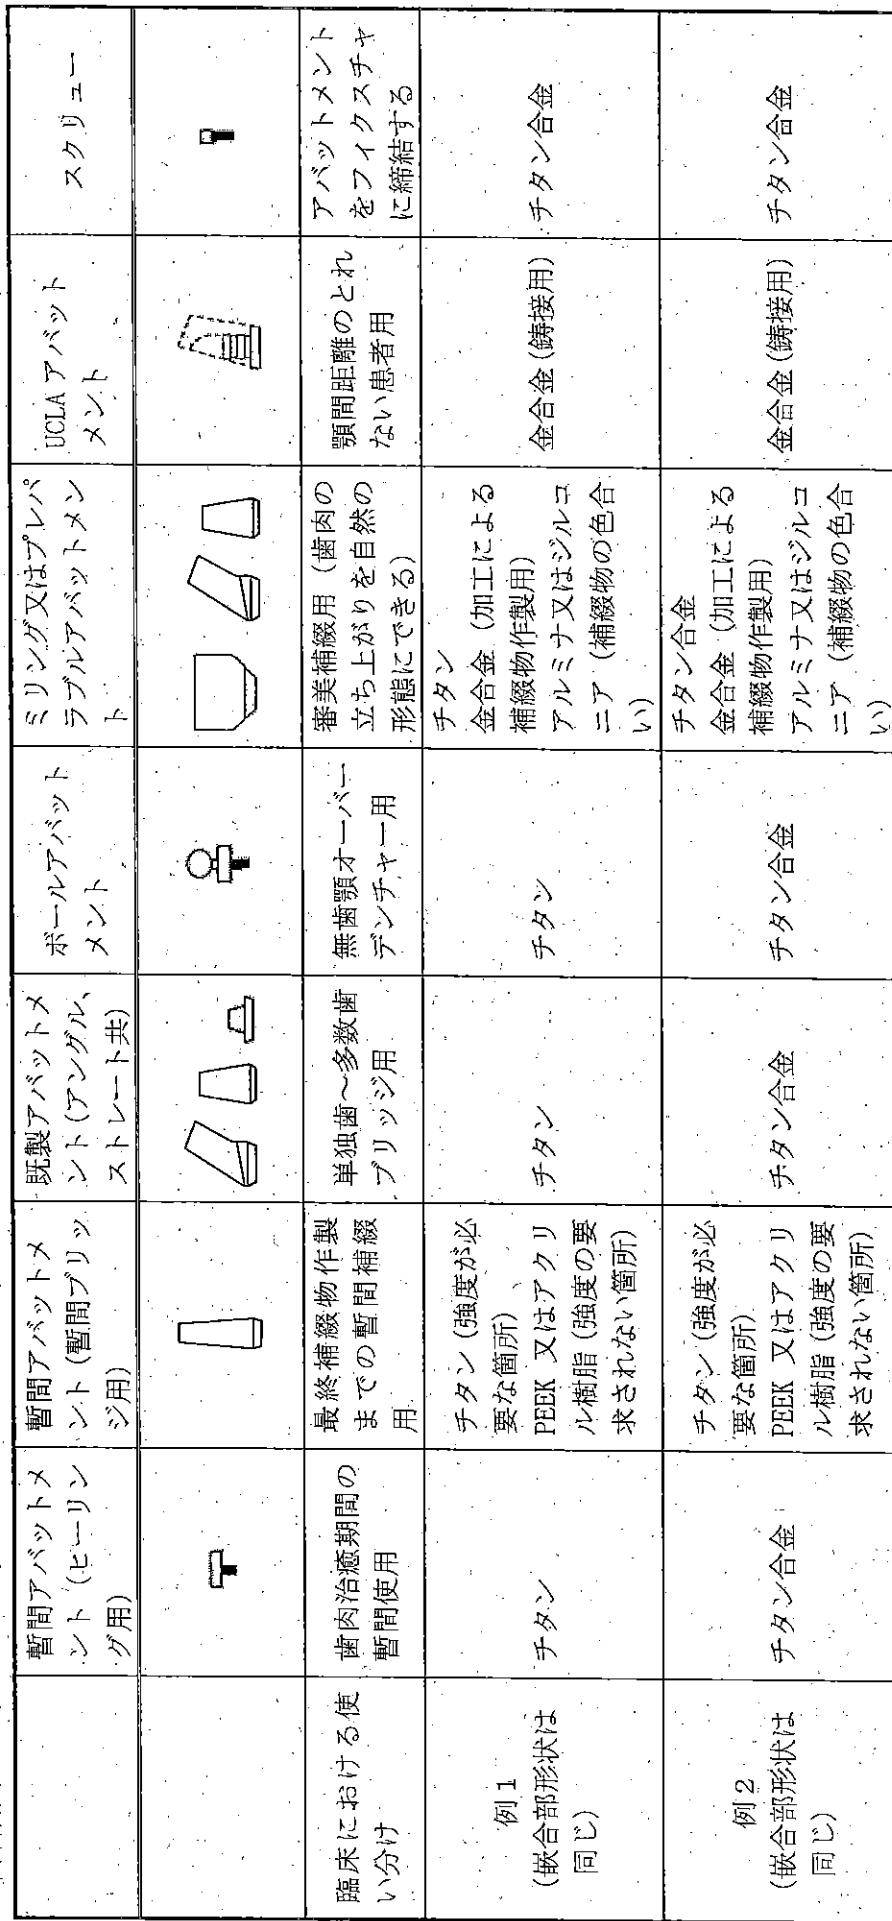 暫間アバットメ
ント（ヒーリン
グ用）
暫間アバットメ
ント(暫間ブリッ
ジ用)
既製アバットメ
ント(アングル、
ストレート共)
ボールアバット
メント
ミリング又はプレパ
ラブルアバットメン
ト
UCLA アバット
メント
スクリュー
臨床における使
い分け
歯肉治癒期間の
暫間使用
最終補綴物作製
までの暫間補綴
用
単独歯～多数歯
ブリッジ用
無歯顎オーバー
デンチャー用
審美補綴用（歯肉の
立ち上がりを自然の
形態にできる）
顎間距離のとれ
ない患者用
アバットメント
をフィクスチャ
に締結する
例１
(嵌合部形状は
同じ)
チタン
チタン(強度が必
要な箇所)、
PEEK 又はアクリ
ル樹脂(強度の要
求されない箇所)
チタン
チタン
チタン
金合金（加工による
補綴物作製用）
アルミナ又はジルコ
ニア（補綴物の色合
い）
金合金(鋳接用)
チタン合金
例２
(嵌合部形状は
同じ)
チタン合金
チタン(強度が必
要な箇所)
PEEK 又はアクリ
ル樹脂(強度の要
求されない箇所)
チタン合金
チタン合金
チタン合金
金合金（加工による
補綴物作製用）
アルミナ又はジルコ
ニア（補綴物の色合
い）
金合金(鋳接用)
チタン合金